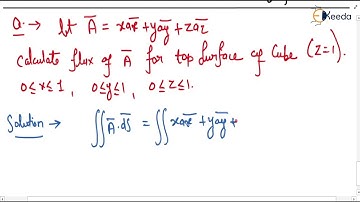 Ekeeda
Q. → let A̅ = xa̅x̅ + ya̅y̅ + za̅z̅
Calculate flux of A̅ for top surface of Cube (z=1).
0≤x≤1, 0≤y≤1, 0≤z≤1.
Solution → ∬ A̅.d̅s̅ = ∬ xa̅x̅ + ya̅y̅ +